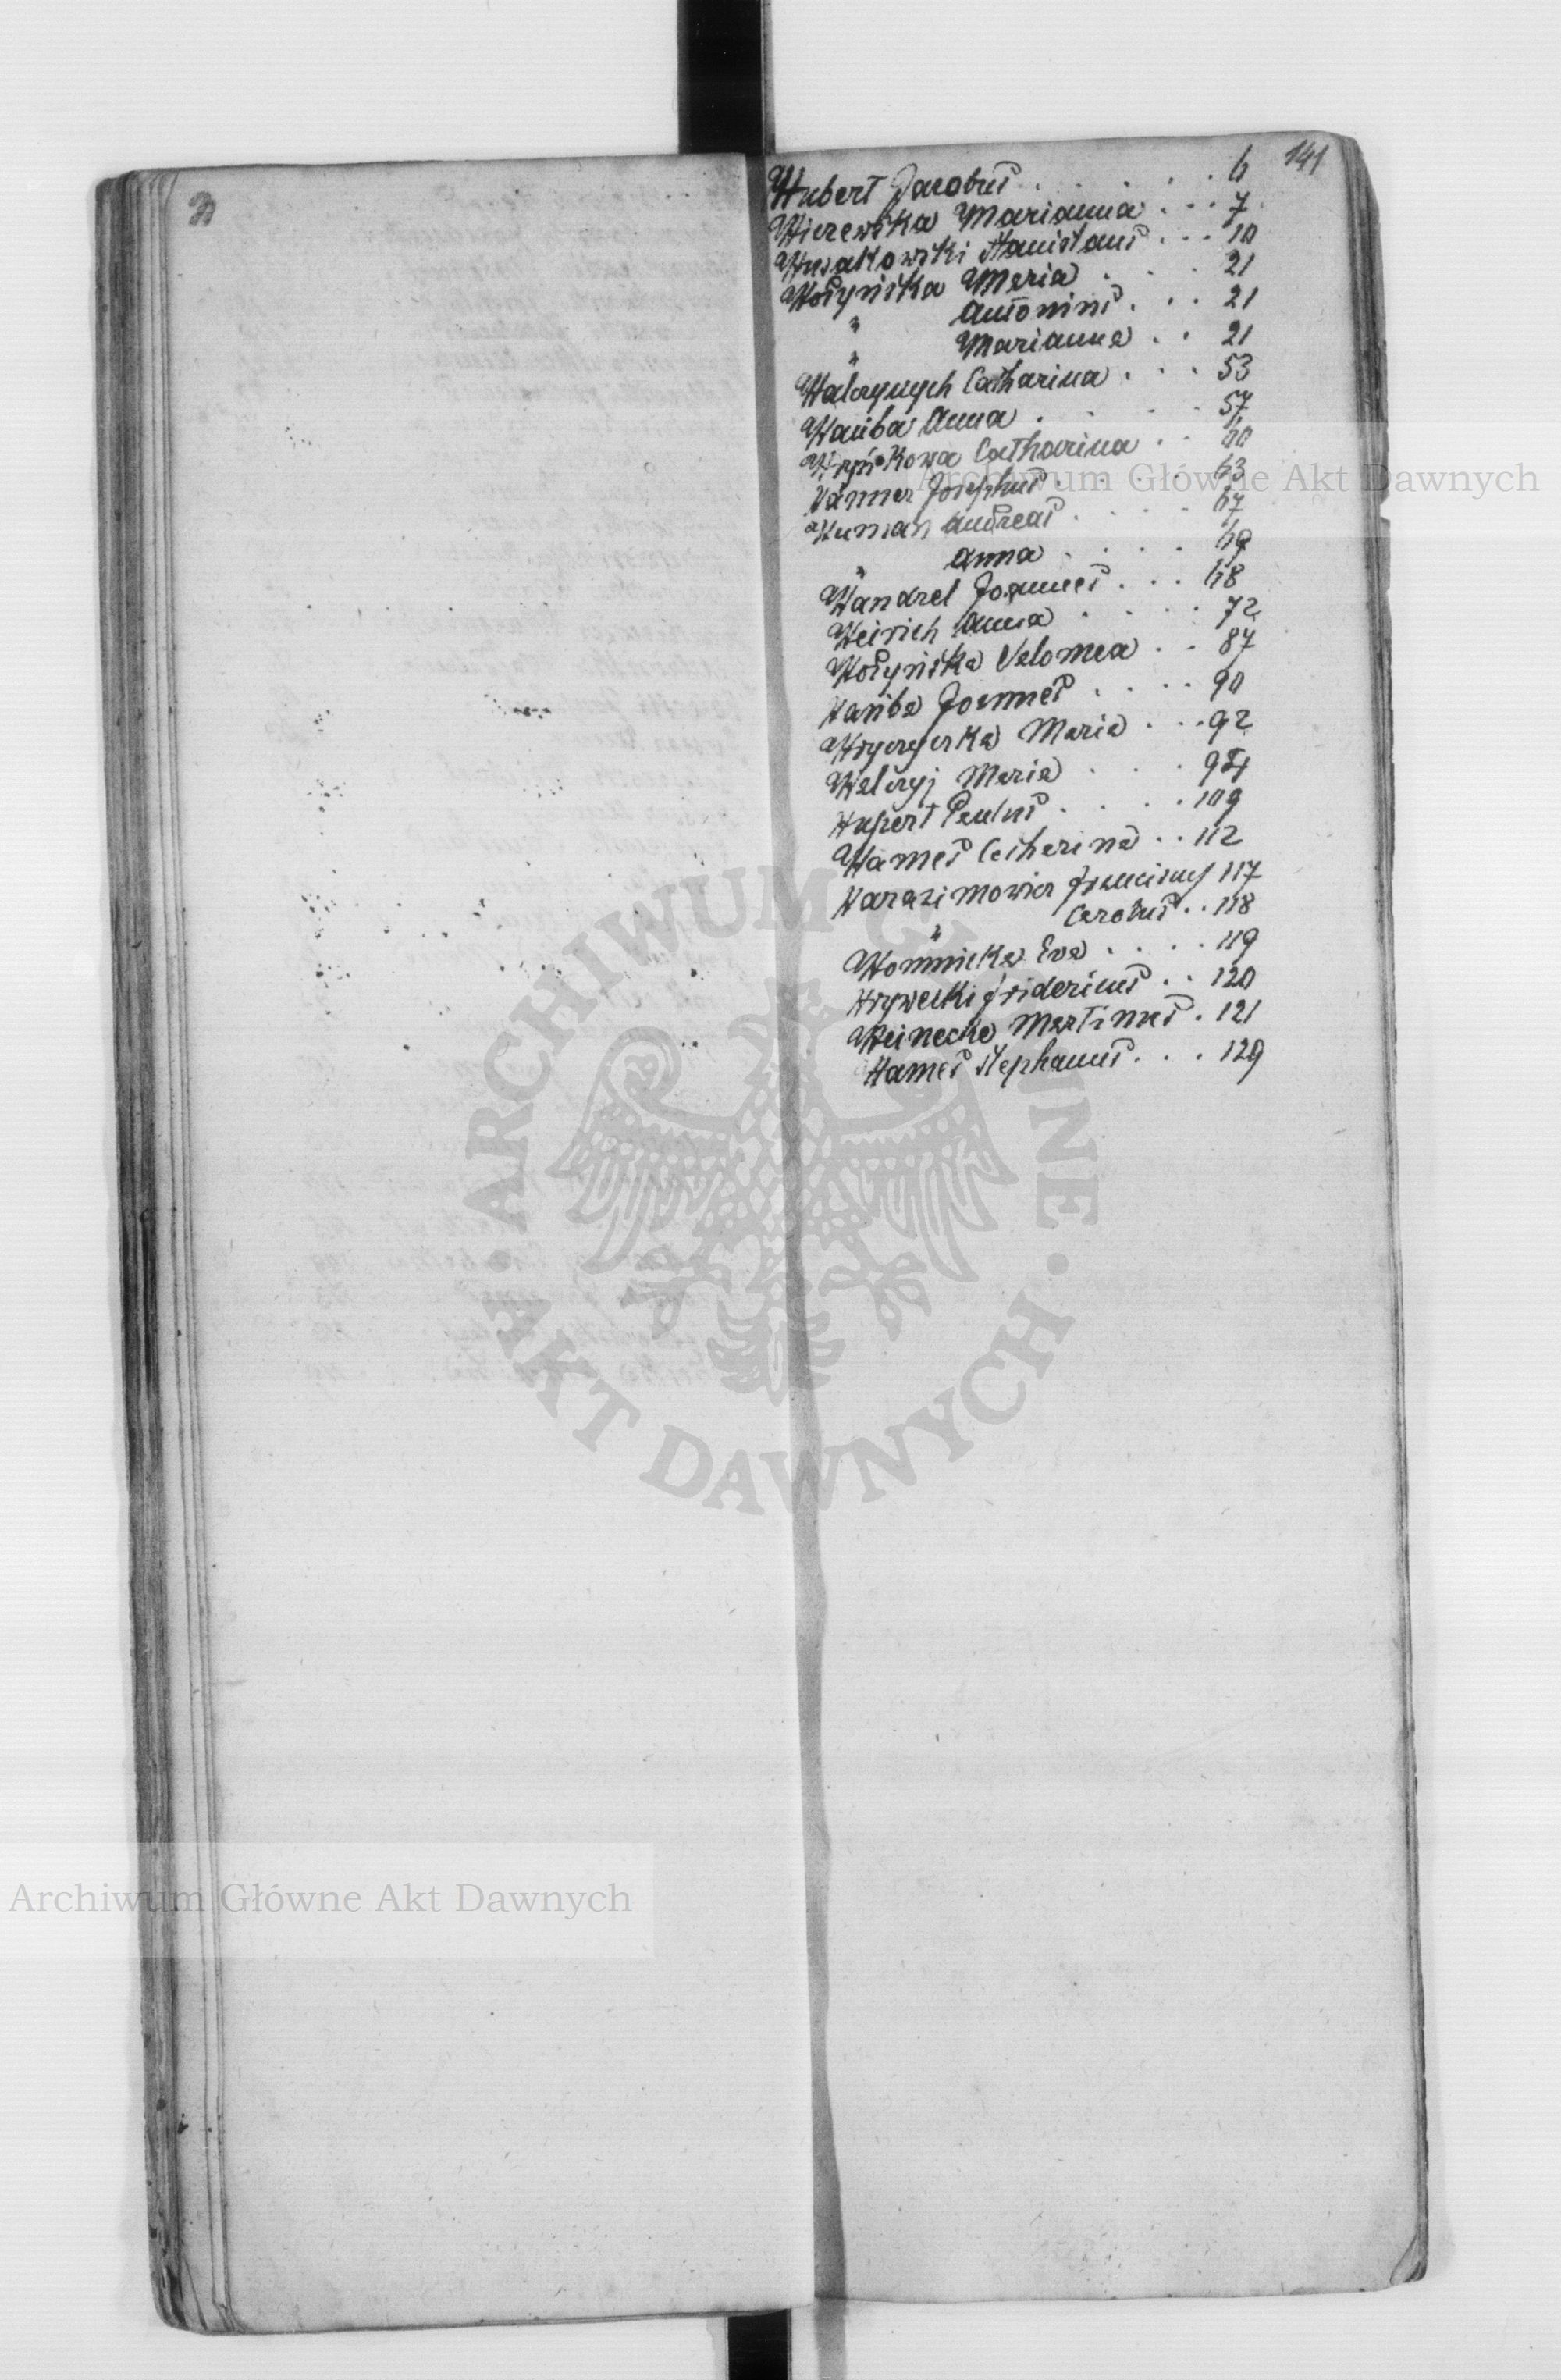 141
Hubert Jacobus . . . . . 6
Wierewska Marianna . . . 7
Husakowski Stanislaus . . . 10
Wołyńska Maria . . . 21
" Antonius . . . 21
" Marianna . . 21
Walczynych Catharina . . . 53
Hańba Anna . . . . 57
Catharina . . 60
Wanner Josephus . . . . 63
Human Andreas . . . . 67
" Anna . . . . 69
Wandrel Joannes . . . 68
Weirich Anna . . . . 72
Wołyńska Salomea . . 87
Hańba Joannes . . . . 90
Hryczyszka Maria . . . 92
Walczyj Maria . . . 94
Hupert Paulus . . . . 109
Hames Catharina . . 112
Harazimowicz Franciscus 117
" Carolus . . 118
Womnicka Eva . . . . 119
Hrywecki Fridericus . . 120
Reinecke Martinus . 121
Hames Stephanus . . . 129
Archiwum Główne Akt Dawnych
ARCHIWUM GŁÓWNE
AKT DAWNYCH
Archiwum Główne Akt Dawnych